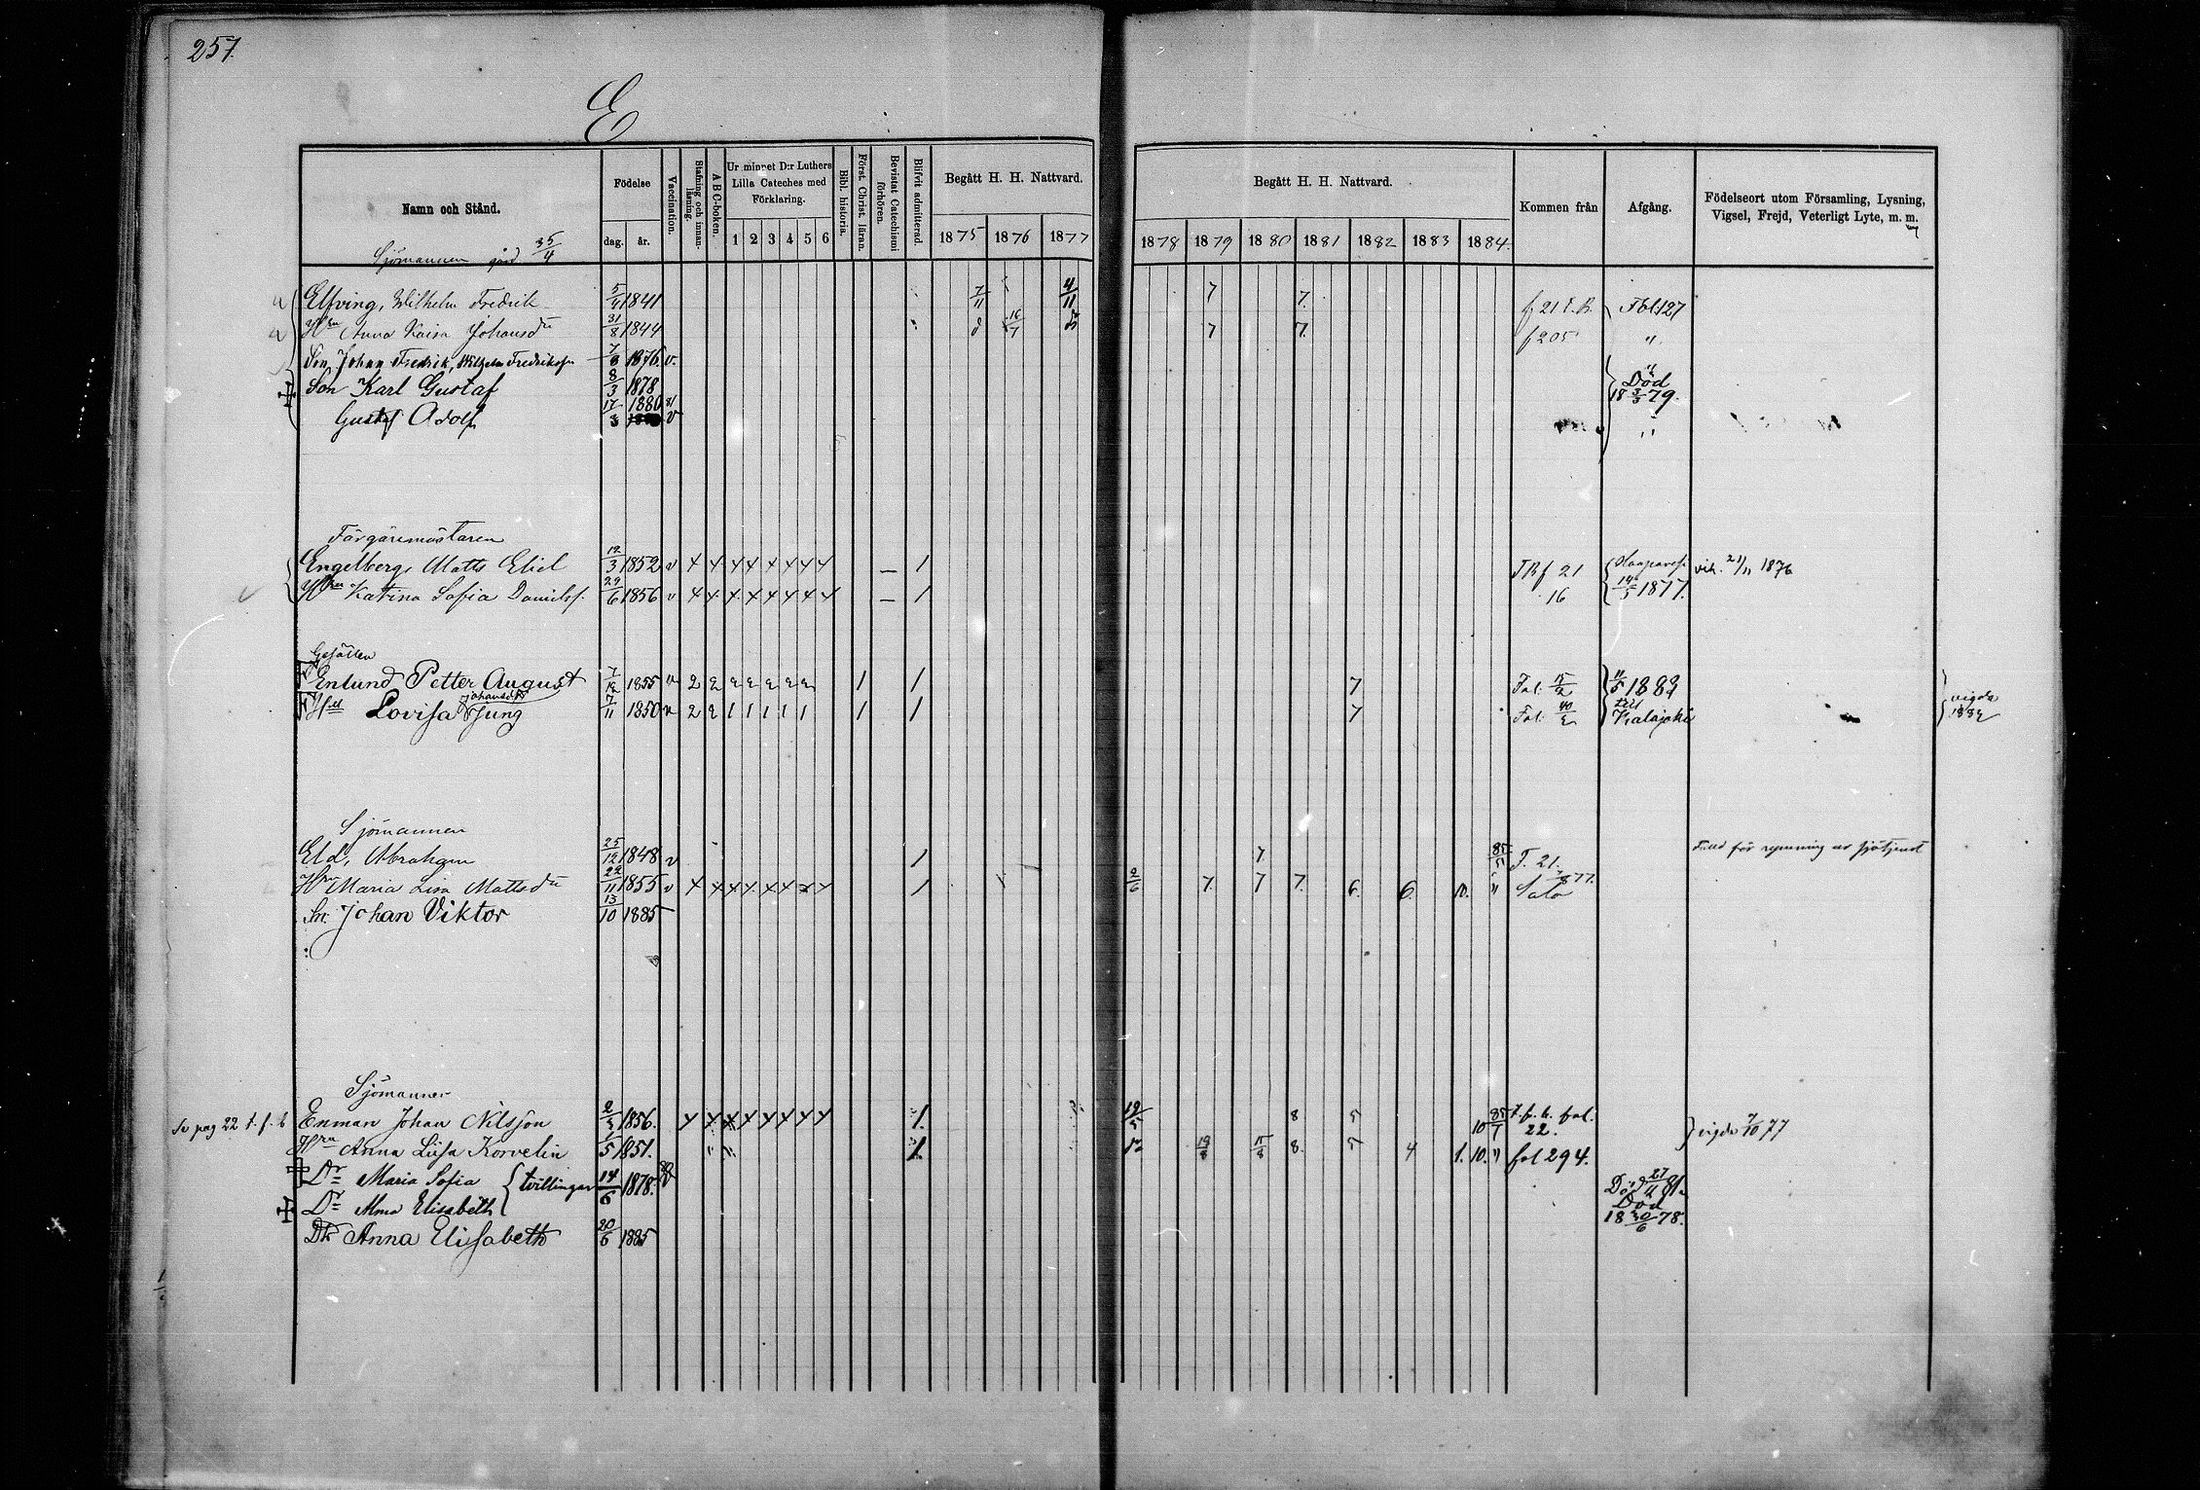 257.
E
Namn och Stånd.
Födelse
dag. år.
Vaccination.
Stafning och innan-läsning.
A B C-boken.
Ur minnet D:r Luthers Lilla Cateches med Förklaring.
1 2 3 4 5 6
Bibl. historia.
Först. Christ. läran.
Bevistat Catechismi förhören.
Blifvit admitterad.
Begått H. H. Nattvard.
1875 1876 1877
Begått H. H. Nattvard.
1878 1879 1880 1881 1882 1883 1884.
Kommen från
Afgång.
Födelseort utom Församling, Lysning, Vigsel, Frejd, Veterligt Lyte, m. m.
Sjömannen gård 35/4
Elfving, Wilhelm Fredrik 5/4 1841 7/11 4/11 7 7. f 21 t.B. Fol 127
Hru Anna Kaisa Johansdr 31/8 1844 16/7 7 7. f 205 "
Son Johan Fredrik, Wilhelm Fredriksson 7/8 1876. v.
Son Karl Gustaf 8/3 1878 Död 18 3/3 79.
Gustaf Adolf 17/3 1880 v "
Färgäremästaren
Engelberg, Matts Eliel 12/3 1852 v x x x x x x x x — 1 TBf 21 Haapavesi vih. 21/11 1876
Hru Katrina Sofia Danielsf. 29/6 1856 v x x x x x x x x — 1 16 1877.
Gesällen
Enlund Petter August 7/12 1855 v 2 2 2 2 2 2 2 1 1 7 Fol. 15/2 11/5 1883
Hu Lovisa Johansdr Ljung 7/11 1850 v 2 2 1 1 1 1 1 1 1 7 Fol. 40/2 till Kalajoki vigda 1882
Sjömannen
Eld, Abraham 25/12 1848 v 1 7 85/5 F. 21. Fälld för rymning ur sjötjenst
Hru Maria Lisa Mattsdr 22/11 1855 v x x x x x x x x 1 2/6 7. 7 7. 6. 6. 10. " Salo 77.
Sn. Johan Viktor 13/10 1885
Sjömannen
Se pag 22 t. f. b Enman Johan Nilsson 2/3 1856. x x x x x x x x 1. 19/5 8 5 10 85/7 t. f. b. fol. 22. vigda 7/10 77
Hru Anna Lisa Korvelin 1/5 1851. " " 1. 8. 5 4 1. 10. " fol 294.
Dr Maria Sofia tvillingar 14/6 1878. v Död 27/11 81.
Dr Alma Elisabeth Död 18 30/6 78.
Dtr Anna Elisabeth 20/6 1885